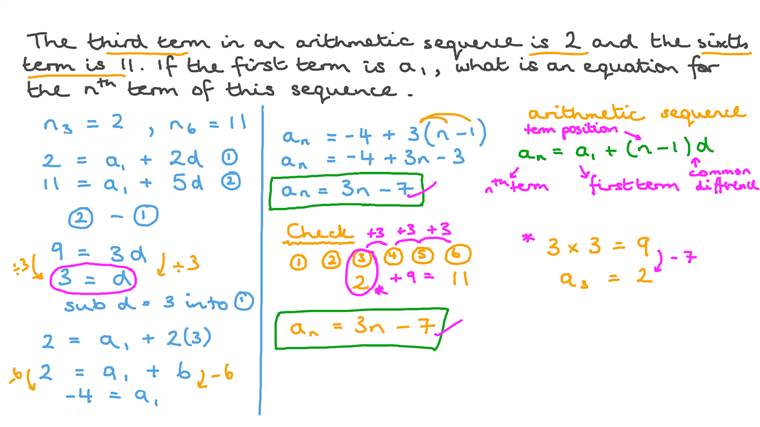 The third term in an arithmetic sequence is 2 and the sixth
term is 11. If the first term is a₁, what is an equation for
the nᵗʰ term of this sequence.
n₃ = 2 , n₆ = 11
2 = a₁ + 2d ①
11 = a₁ + 5d ②
② - ①
9 = 3d
÷3 ÷3
3 = d
sub d = 3 into ①
2 = a₁ + 2(3)
-6 2 = a₁ + 6 -6
-4 = a₁
aₙ = -4 + 3(n-1)
aₙ = -4 + 3n - 3
aₙ = 3n - 7
Check +3 +3 +3
① ② ③ ④ ⑤ ⑥
2 +9 = 11
aₙ = 3n - 7
arithmetic sequence
term position
aₙ = a₁ + (n-1)d
nᵗʰ term first term common
difference
* 3 × 3 = 9
-7
a₃ = 2